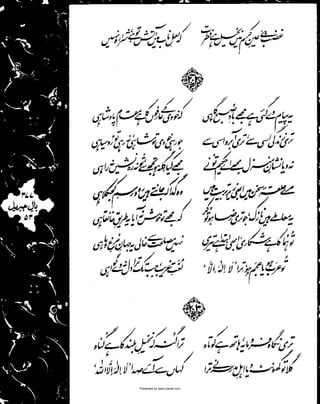 غضب ہے، عینِ کرم میں بخیل ہے فطرت کہ لعلِ ناب میں آتش تو ہے، شرارہ نہیں
یہ پیام دے گئی ہے مجھے بادِ صبح گاہی کہ خودی کے عارفوں کا ہے مقام پادشاہی
تری زندگی اسی سے، تری آبرو اسی سے جو رہی خودی تو شاہی، نہ رہی تو رو سیاہی
نہ دیا نشانِ منزل مجھے اے حکیم تو نے مجھے کیا گلہ ہو تجھ سے، تو نہ رہ نشیں نہ راہی
مرے حلقۂ سخن میں ابھی زیرِ تربیت ہیں وہ گدا کہ جانتے ہیں رہ و رسمِ کجکلاہی
یہ معاملے ہیں نازک، جو تری رضا ہو تو کر کہ مجھے تو خوش نہ آیا یہ طریقِ خانقاہی
تو ہما کا ہے شکاری، ابھی ابتدا ہے تیری نہیں مصلحت سے خالی یہ جہانِ مرغ و ماہی
تو عرب ہو یا عجم ہو، ترا لا الٰہ الّا لغتِ غریب، جب تک ترا دل نہ دے گواہی
تری نگاہ فرومایہ، ہاتھ ہے کوتاہ ترا گنہ کہ نخیلِ بلند کا ہے گناہ
گلا تو گھونٹ دیا اہلِ مدرسہ نے ترا کہاں سے آئے صدا لا الٰہ الّا اللہ
۳۷۷
بالِ جبریل
۵۳